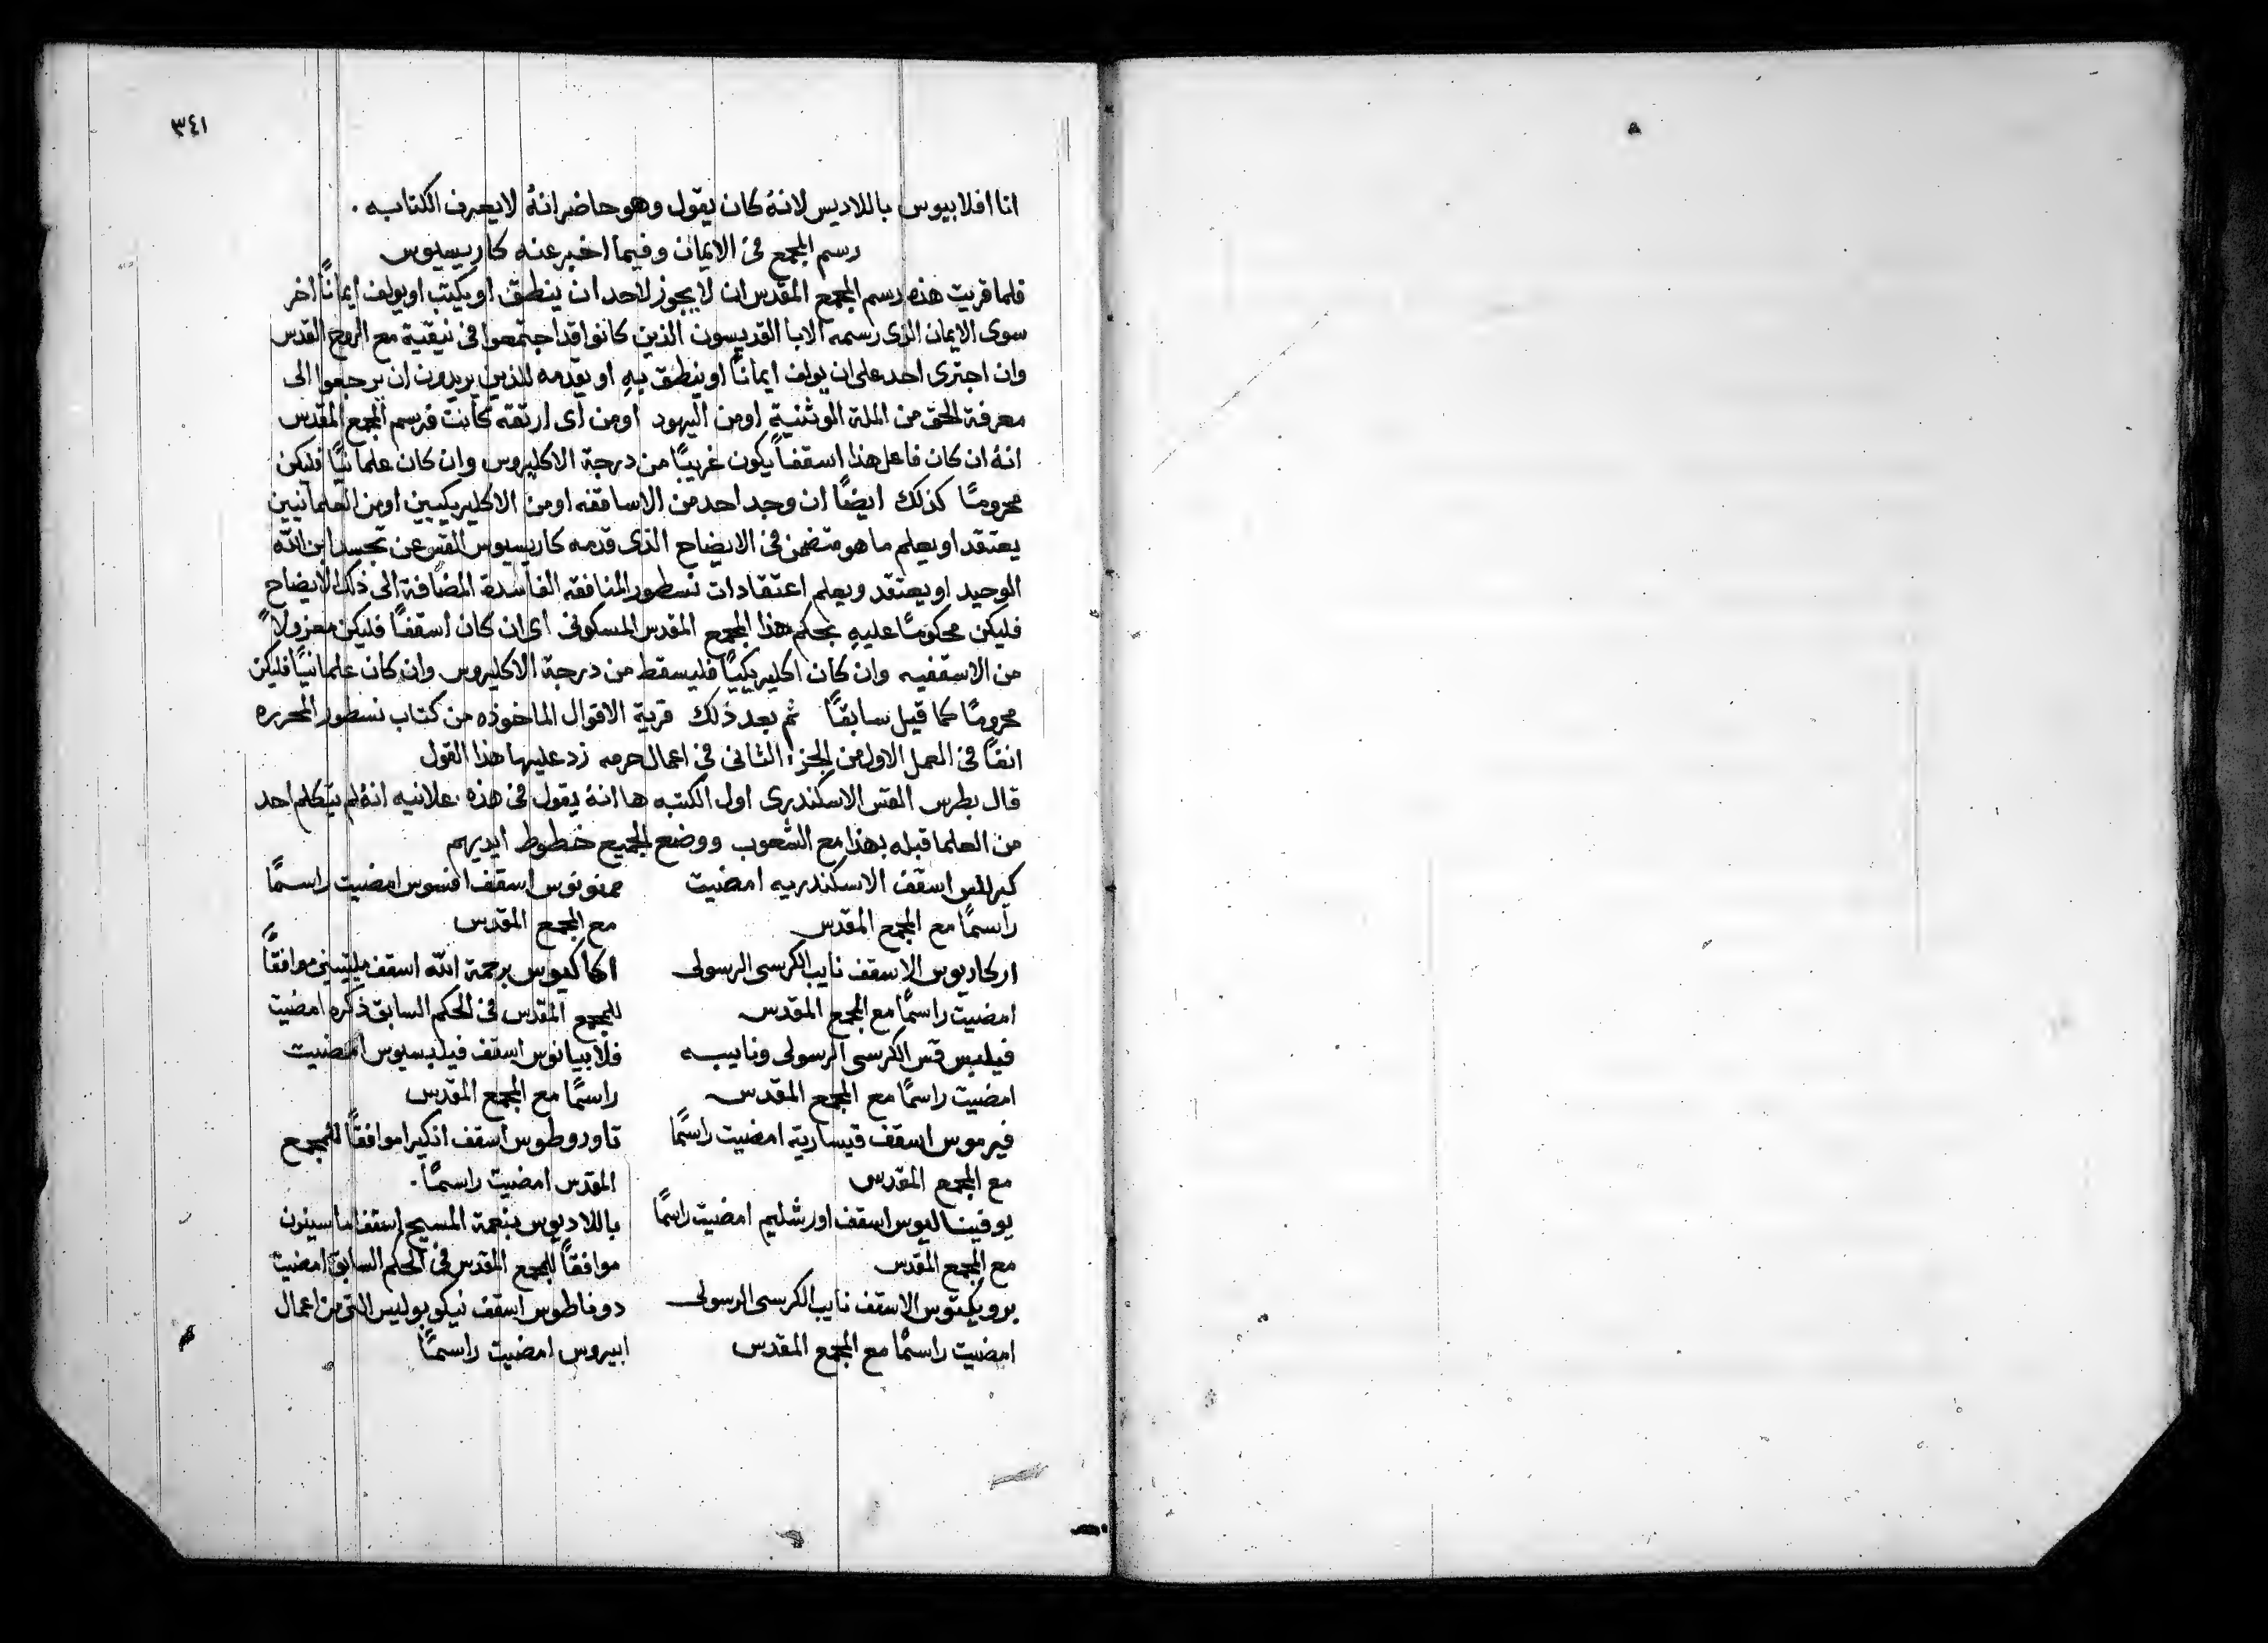 ٣٤١
انا افلابيوس باللاديس لانهُ كان يقول وهو حاضر انهُ لا يعرف الكتابه .
رسم المجمع فى الايمان وفيما اخبر عنه كاريسيوس
فلما قريت هذه رسم المجمع المقدس ان لا يجوز لاحد ان ينطق او يكتب او يولف ايمانًا اخر
سوى الايمان الذى رسمه الابا القديسون الذين كانوا قد اجتمعوا فى نيقية مع الروح القدس
وان اجترى احد على ان يولف ايمانًا او ينطق بهِ او يقدمه للذين يريدون ان يرجعوا الى
معرفة الحق من الملة الوثنية اومن اليهود اومن اى ارتقه كانت فرسم المجمع المقدس
انهُ ان كان فاعل هذا اسقفاً يكون غريبًا من درجة الاكليروس وان كان علمانيًا فليكن
محرومًا كذلك ايضًا ان وجد احد من الاساقفه اومن الاكليريكيين اومن العلمانيين
يعتقد او يعلم ما هو متضمن فى الايضاح الذى قدمه كاريسيوس القس عن تجسد ابن الله
الوحيد او يعتقد ويعلم اعتقادات نسطور المنافقه الفاسدة المضافة الى ذلك الايضاح
فليكن محكومًا عليهِ بحكم هذا المجمع المقدس المسكونى اى ان كان اسقفًا فليكن معزولاً
من الاسقفيه وان كان اكليريكيًا فليسقط من درجة الاكليروس وان كان علمانيًا فليكن
محرومًا كما قيل سابقًا ثم بعد ذلك قرية الاقوال الماخوذه من كتاب نسطور المحرره
انفًا فى العمل الاول من الجزء الثانى فى اعمال حرمه زد عليها هذا القول
قال بطرس القس الاسكندرى اول الكتبه ها انهُ يقول فى هذه علانيه انهُ لم يتكلم احد
من العلما قبله بهذا مع الشعوب ووضع الجميع خطوط ايديهم
كيرللس اسقف الاسكندريه امضيت
راسمًا مع المجمع المقدس
اركاديوس الاسقف نايب الكرسى الرسولى
امضيت راسمًا مع المجمع المقدس
فيلبس قس الكرسى الرسولى ونايبه
امضيت راسمًا مع المجمع المقدس
فيرموس اسقف قيسارية امضيت راسمًا
مع المجمع المقدس
يوفيناليوس اسقف اورشليم امضيت راسمًا
مع المجمع المقدس
برويكتوس الاسقف نايب الكرسى الرسولى
امضيت راسمًا مع المجمع المقدس
ممنونوس اسقف افسوس امضيت راسمًا
مع المجمع المقدس
اكاكيوس برحمة الله اسقف مليتينى موافقًا
للمجمع المقدس فى الحكم السابق ذكره امضيت
فلابيانوس اسقف فيلبسيوس امضيت
راسمًا مع المجمع المقدس
تاودوطوس اسقف انكيرا موافقًا للمجمع
المقدس امضيت راسمًا .
باللاديوس بنعمة المسيح اسقف اماسينون
موافقًا للمجمع المقدس فى الحكم السابق امضيت
دوناطوس اسقف نيكوبوليس التى من اعمال
ابيروس امضيت راسمًا